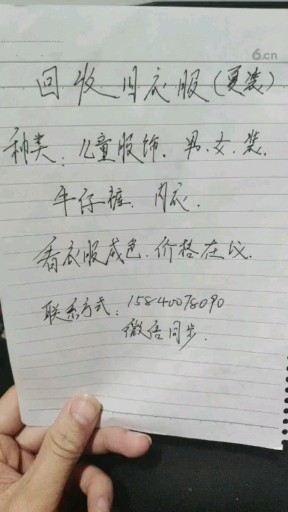 6.cn
回收旧衣服(夏装)
种类:儿童服饰.男.女.装.
牛仔裤.内衣.
看衣服成色.价格在议.
联系方式:15840078090
微信同步.